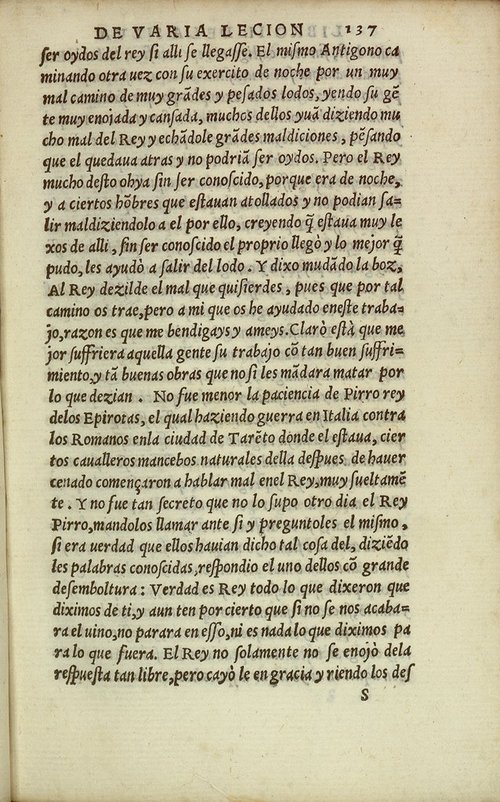 DE VARIA LECION 137
ser oydos del rey si alli se llegasse. El mismo Antigono ca
minando otra uez con su exercito de noche por un muy
mal camino de muy grãdes y pesados lodos, yendo su gẽ
te muy enojada y cansada, muchos dellos yuã diziendo mu
cho mal del Rey y echãdole grãdes maldiciones, pẽsando
que el quedaua atras y no podriã ser oydos. Pero el Rey
mucho desto ohya sin ser conoscido, porque era de noche,
y a ciertos hõbres que estauan atollados y no podian sa-
lir maldiziendolo a el por ello, creyendo q̃ estaua muy le
xos de alli, sin ser conoscido el proprio llegò y lo mejor q̃
pudo, les ayudò a salir del lodo. Y dixo mudãdo la boz,
Al Rey dezilde el mal que quisierdes, pues que por tal
camino os trae, pero a mi que os he ayudado eneste traba-
jo, razon es que me bendigays y ameys. Claro està que me
jor suffriera aquella gente su trabajo cõ tan buen suffri-
miento, y tã buenas obras que no si les mãdara matar por
lo que dezian. No fue menor la paciencia de Pirro rey
delos Epirotas, el qual haziendo guerra en Italia contra
los Romanos enla ciudad de Tarẽto donde el estaua, cier
tos caualleros mancebos naturales della despues de hauer
cenado començaron a hablar mal enel Rey, muy sueltamẽ
te. Y no fue tan secreto que no lo supo otro dia el Rey
Pirro, mandolos llamar ante si y preguntoles el mismo,
si era verdad que ellos hauian dicho tal cosa del, diziẽdo
les palabras conoscidas, respondio el uno dellos cõ grande
desemboltura: Verdad es Rey todo lo que dixeron que
diximos de ti, y aun ten por cierto que si no se nos acaba-
ra el uino, no parara en esso, ni es nada lo que diximos pa
ra lo que fuera. El Rey no solamente no se enojò dela
respuesta tan libre, pero cayò le en gracia y riendo los des
S